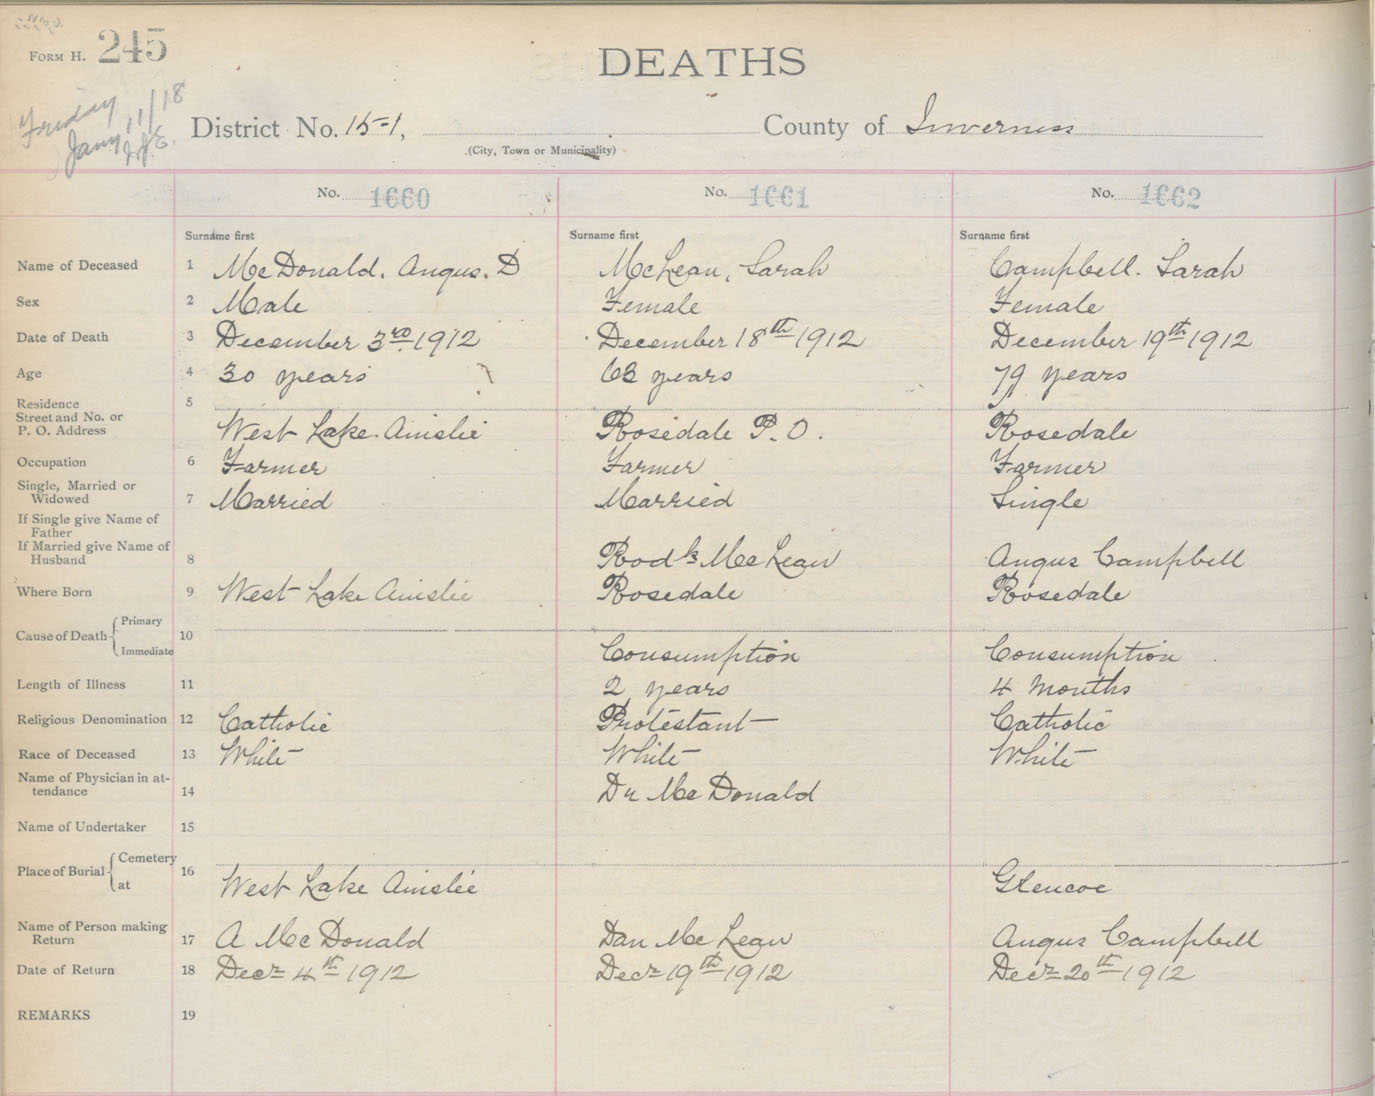 FORM H. 245
DEATHS
Friday
Jany 11/18
District No. 15-1,
County of Inverness
(City, Town or Municipality)
No. 1660
No. 1661
No. 1662
Surname first
Surname first
Surname first
Name of Deceased 1 McDonald. Angus. D McLean, Sarah Campbell. Sarah
Sex 2 Male Female Female
Date of Death 3 December 3rd 1912 December 18th 1912 December 19th 1912
Age 4 30 years 63 years 79 years
Residence 5
Street and No. or
P. O. Address West Lake Ainslie Rosedale P.O. Rosedale
Occupation 6 Farmer Farmer Farmer
Single, Married or
Widowed 7 Married Married Single
If Single give Name of
Father
If Married give Name of
Husband 8 Rodk McLean Angus Campbell
Where Born 9 West Lake Ainslie Rosedale Rosedale
Cause of Death 10
Primary
Immediate Consumption Consumption
Length of Illness 11 2 years 4 months
Religious Denomination 12 Catholic Protestant Catholic
Race of Deceased 13 White White White
Name of Physician in at-
tendance 14 Dr McDonald
Name of Undertaker 15
Place of Burial 16
Cemetery
at West Lake Ainslie Glencoe
Name of Person making
Return 17 A McDonald Dan McLean Angus Campbell
Date of Return 18 Decr 4th 1912 Decr 19th 1912 Decr 20th 1912
REMARKS 19